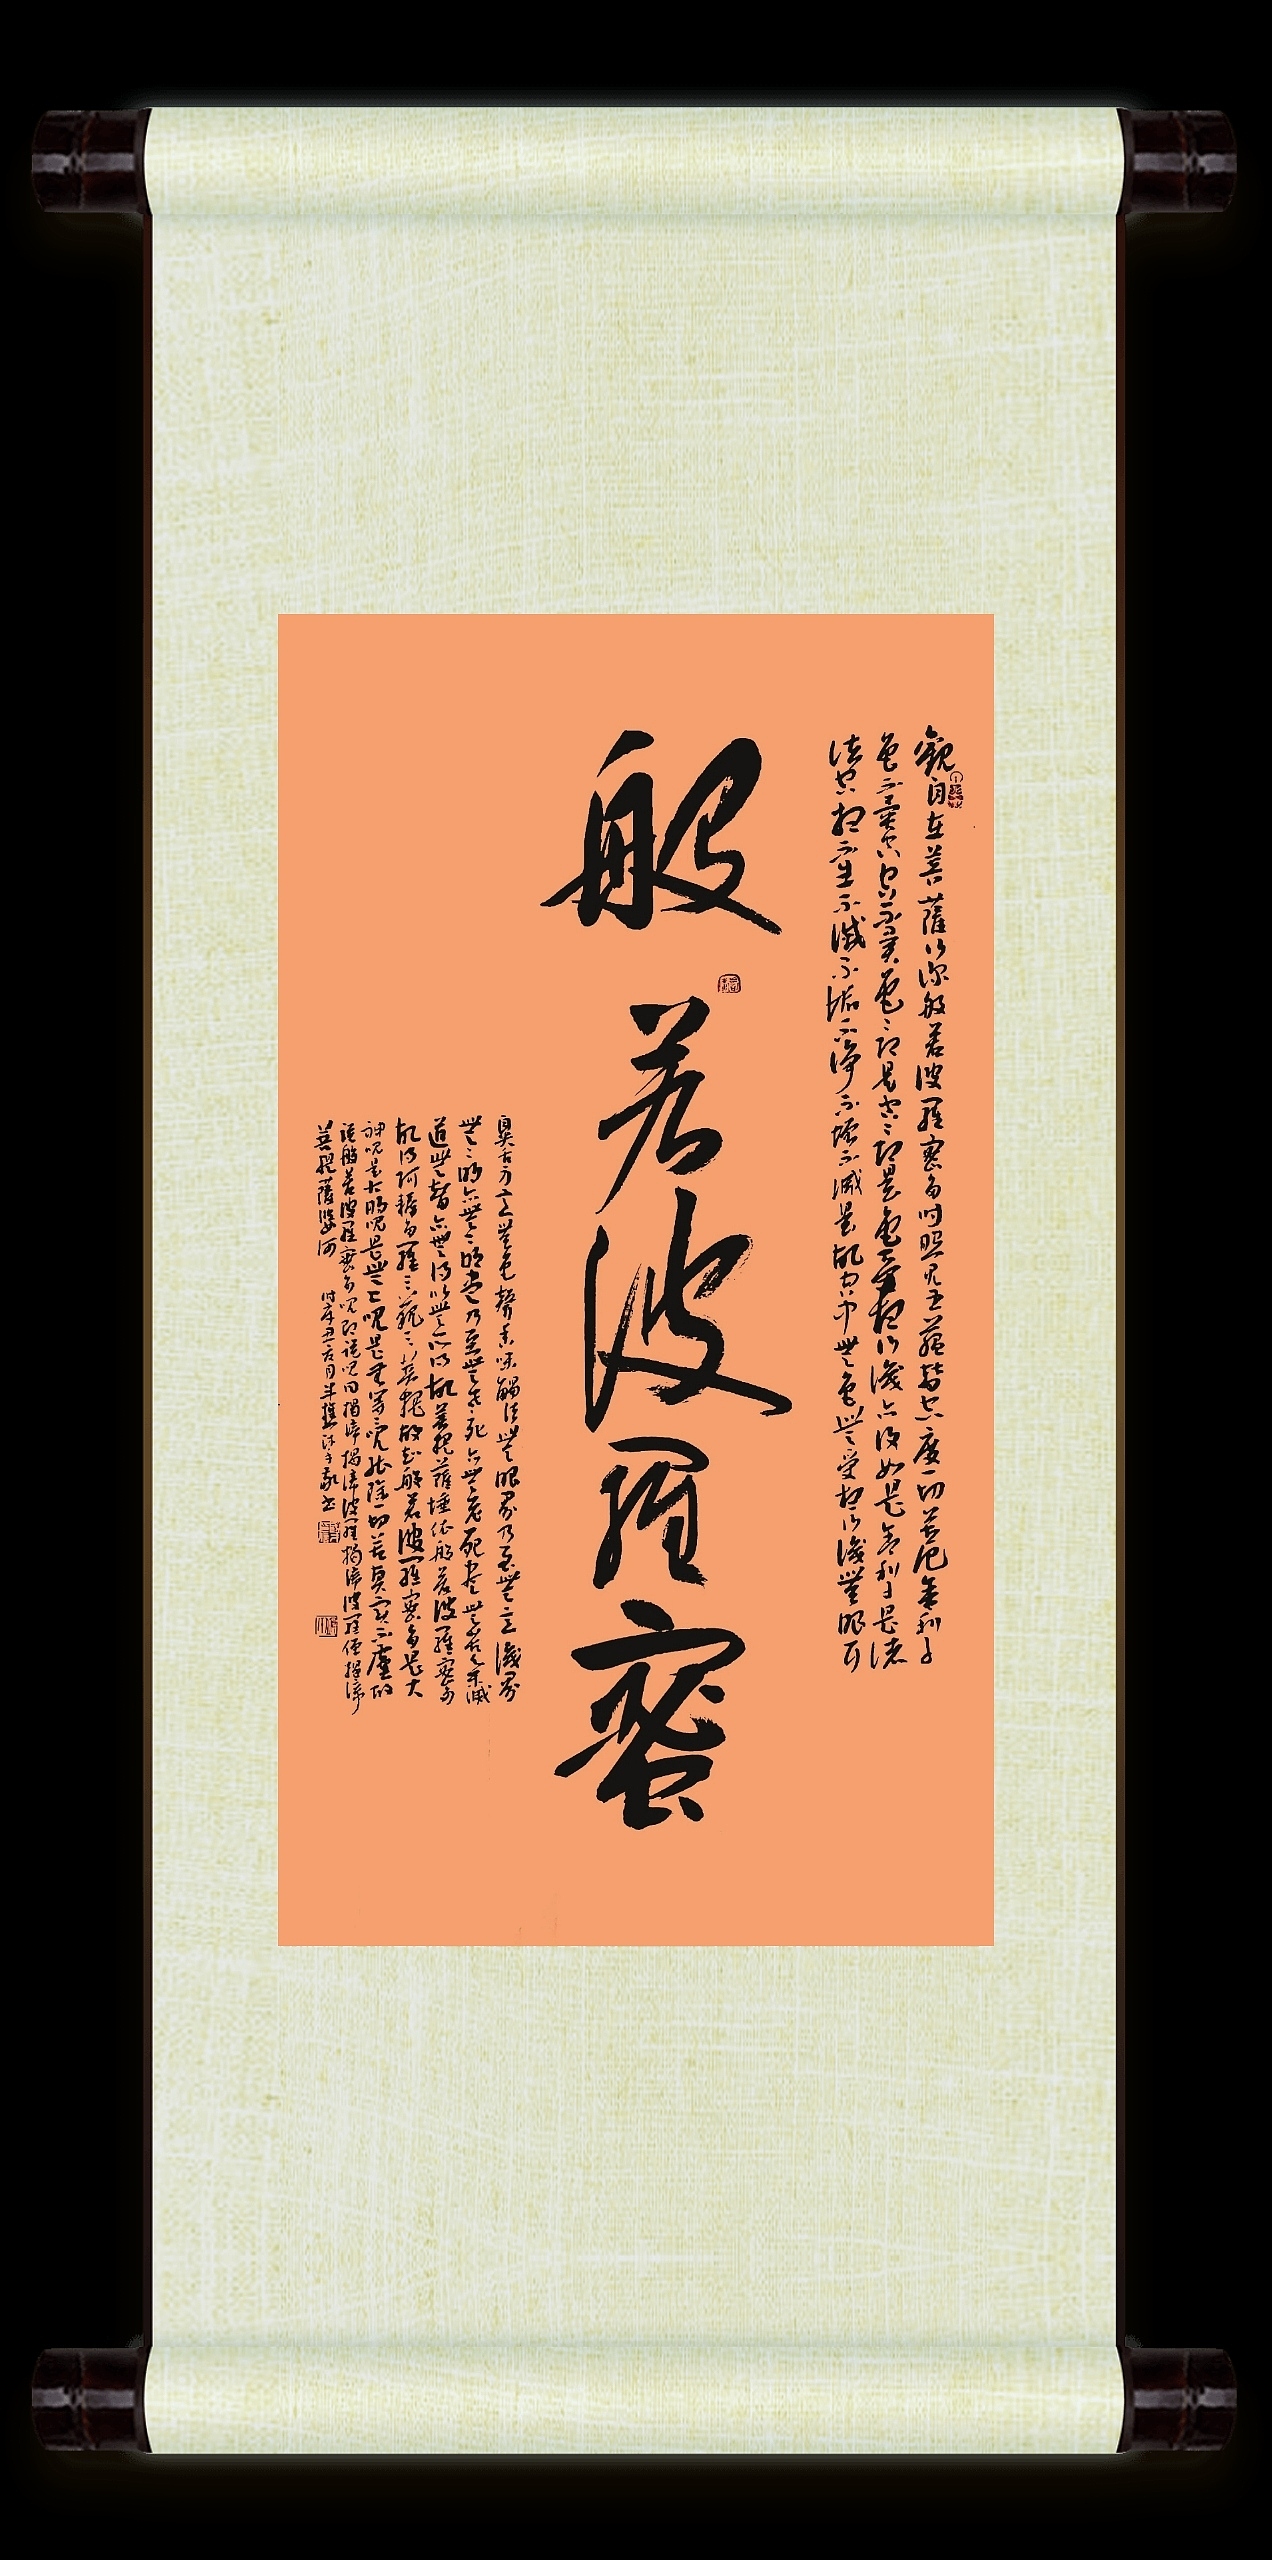 觀自在菩薩行深般若波羅蜜多時照見五蘊皆空度一切苦厄舍利子
色不異空空不異色色即是空空即是色受想行識亦復如是舍利子是諸
法空相不生不滅不垢不淨不增不減是故空中無色無受想行識無眼耳
般若波羅蜜
鼻舌身意無色聲香味觸法無眼界乃至無意識界
無無明亦無無明盡乃至無老死亦無老死盡無苦集滅
道無智亦無得以無所得故菩提薩埵依般若波羅蜜多
故得阿耨多羅三藐三菩提故知般若波羅蜜多是大
神咒是大明咒是無上咒是無等等咒能除一切苦真實不虛故
說般若波羅蜜多咒即說咒曰揭諦揭諦波羅揭諦波羅僧揭諦
菩提薩婆訶